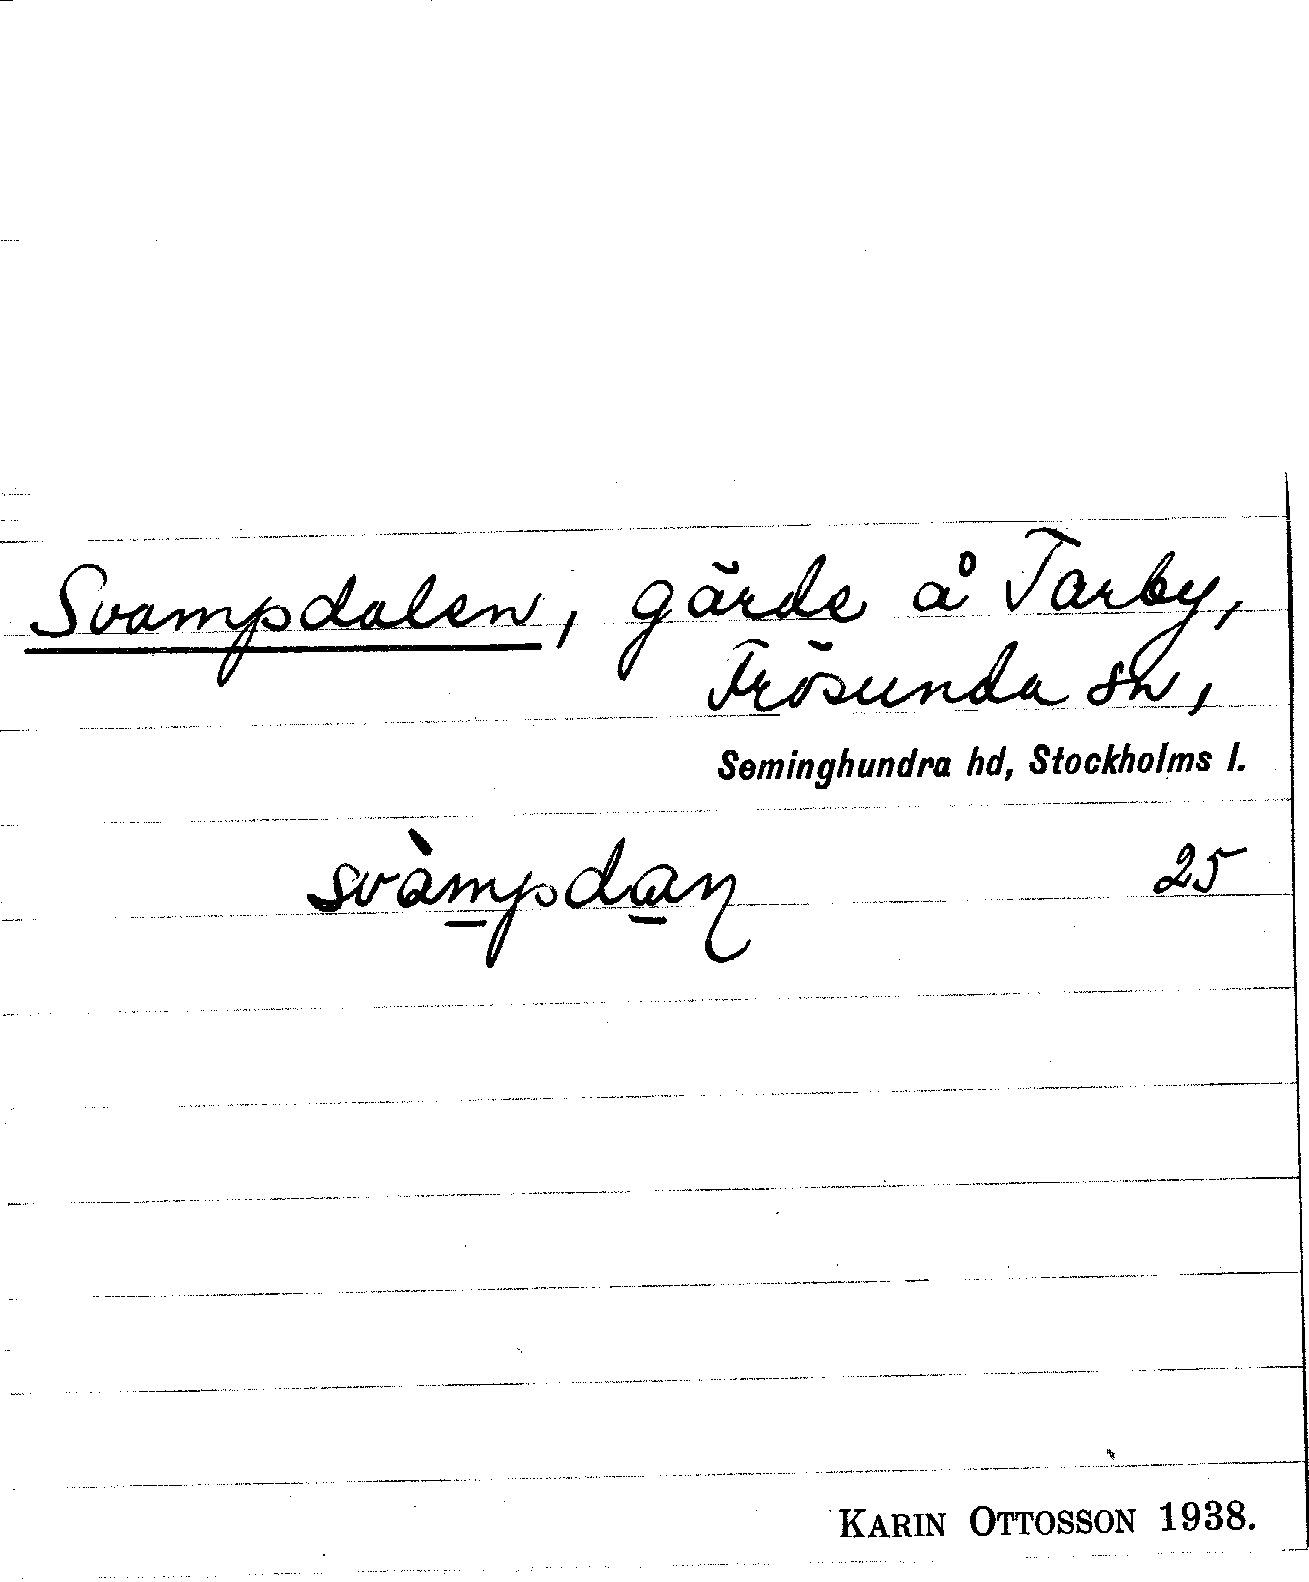 Svampdalen, gärde å Tarby,
Frösunda sn,
Seminghundra hd, Stockholms l.
svàmpdaɳ 25
KARIN OTTOSSON 1938.